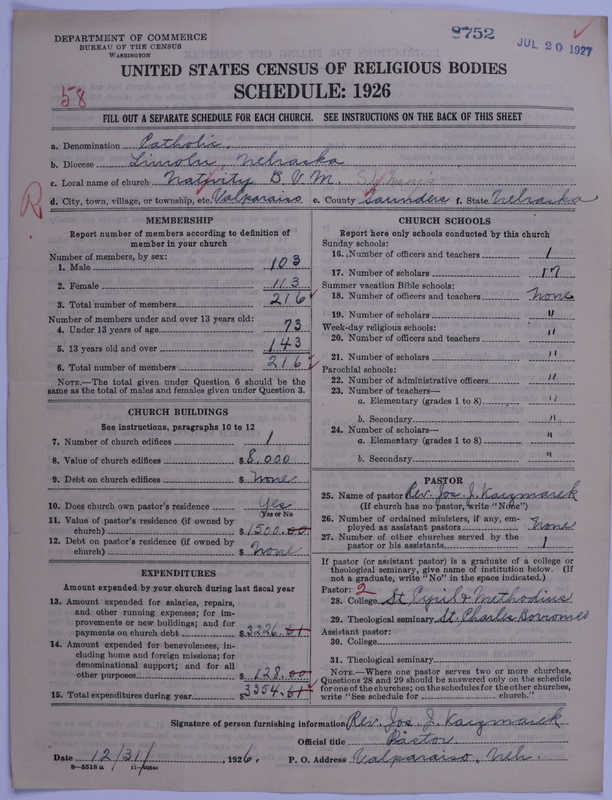 DEPARTMENT OF COMMERCE
BUREAU OF THE CENSUS
WASHINGTON
8752
JUL 20 1927
UNITED STATES CENSUS OF RELIGIOUS BODIES
SCHEDULE: 1926
58
FILL OUT A SEPARATE SCHEDULE FOR EACH CHURCH. SEE INSTRUCTIONS ON THE BACK OF THIS SHEET
a. Denomination Catholic
b. Diocese Lincoln, Nebraska
c. Local name of church Nativity B.V.M. St Mary's
R
d. City, town, village, or township, etc. Valparaiso e. County Saunders f. State Nebraska
MEMBERSHIP
Report number of members according to definition of
member in your church
Number of members, by sex:
1. Male 103
2. Female 113
3. Total number of members 216
Number of members under and over 13 years old:
4. Under 13 years of age 73
5. 13 years old and over 143
6. Total number of members 216
NOTE.—The total given under Question 6 should be the
same as the total of males and females given under Question 3.
CHURCH BUILDINGS
See instructions, paragraphs 10 to 12
7. Number of church edifices 1
8. Value of church edifices $8.000
9. Debt on church edifices $ None
10. Does church own pastor's residence Yes
Yes or No
11. Value of pastor's residence (if owned by
church) $1500.00
12. Debt on pastor's residence (if owned by
church) $ None
EXPENDITURES
Amount expended by your church during last fiscal year
13. Amount expended for salaries, repairs,
and other running expenses; for im-
provements or new buildings; and for
payments on church debt $3226.61
14. Amount expended for benevolences, in-
cluding home and foreign missions; for
denominational support; and for all
other purposes $128.00
15. Total expenditures during year $3354.61
CHURCH SCHOOLS
Report here only schools conducted by this church
Sunday schools:
16. Number of officers and teachers 1
17. Number of scholars 17
Summer vacation Bible schools:
18. Number of officers and teachers None
19. Number of scholars "
Week-day religious schools:
20. Number of officers and teachers "
21. Number of scholars "
Parochial schools:
22. Number of administrative officers "
23. Number of teachers—
a. Elementary (grades 1 to 8) "
b. Secondary "
24. Number of scholars—
a. Elementary (grades 1 to 8) "
b. Secondary "
PASTOR
25. Name of pastor Rev. Jos. J. Kaczmarek
(If church has no pastor, write "None")
26. Number of ordained ministers, if any, em-
ployed as assistant pastors None
27. Number of other churches served by the
pastor or his assistants 1
If pastor (or assistant pastor) is a graduate of a college or
theological seminary, give name of institution below. (If
not a graduate, write "No" in the space indicated.)
Pastor: 2
28. College St. Cyril & Methodius
29. Theological seminary St. Charles Borromeo
Assistant pastor:
30. College
31. Theological seminary
NOTE.—Where one pastor serves two or more churches,
Questions 28 and 29 should be answered only on the schedule
for one of the churches; on the schedules for the other churches,
write "See schedule for church."
Signature of person furnishing information Rev. Jos. J. Kaczmarek
Official title Pastor
Date 12/31/, 1926. P. O. Address Valparaiso, Neb.
8—5518 a